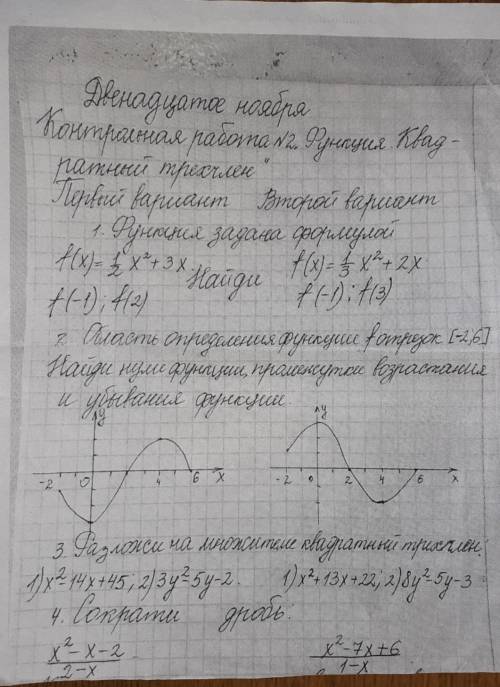 Двенадцатое ноября
Контрольная работа №2. Функция. Квад-
ратный трехчлен"
Первый вариант Второй вариант
1. Функция задана формулой
f(x)=1/2 x²+3x. Найди f(x)=1/3 x²+2x
f(-1); f(2) f(-1); f(3)
2. Область определения функции f отрезок [-2,6]
Найди нули функции, промежутки возрастания
и убывания функции.
y y
-2 0 2 4 6 x -2 0 2 4 6 x
3. Разложи на множители квадратный трехчлен:
1) x²-14x+45; 2) 3y²-5y-2. 1) x²+13x+22; 2) 8y²-5y-3
4. Сократи дробь:
x²-x-2 x²-7x+6
2-x 1-x